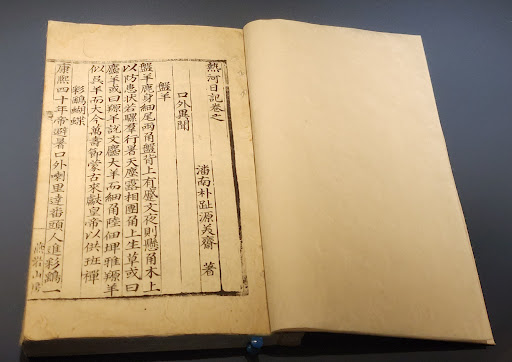 熱河日記卷之
潘南朴趾源美齋 著
口外異聞
盤羊
盤羊鹿身細尾兩角盤背上有蹙文夜則懸角木上
以防患狀若騾羣行暑天塵露相團角上生草或曰
麢羊或曰羱羊說文麢大羊而細角陸佃埤雅羱羊
似吳羊而大今萬壽節蒙古來獻皇帝以供班禪
彩鷂蝴蝶
康熙四十年帝避暑口外喇里達番頭人進彩鷂一
燕岩山房